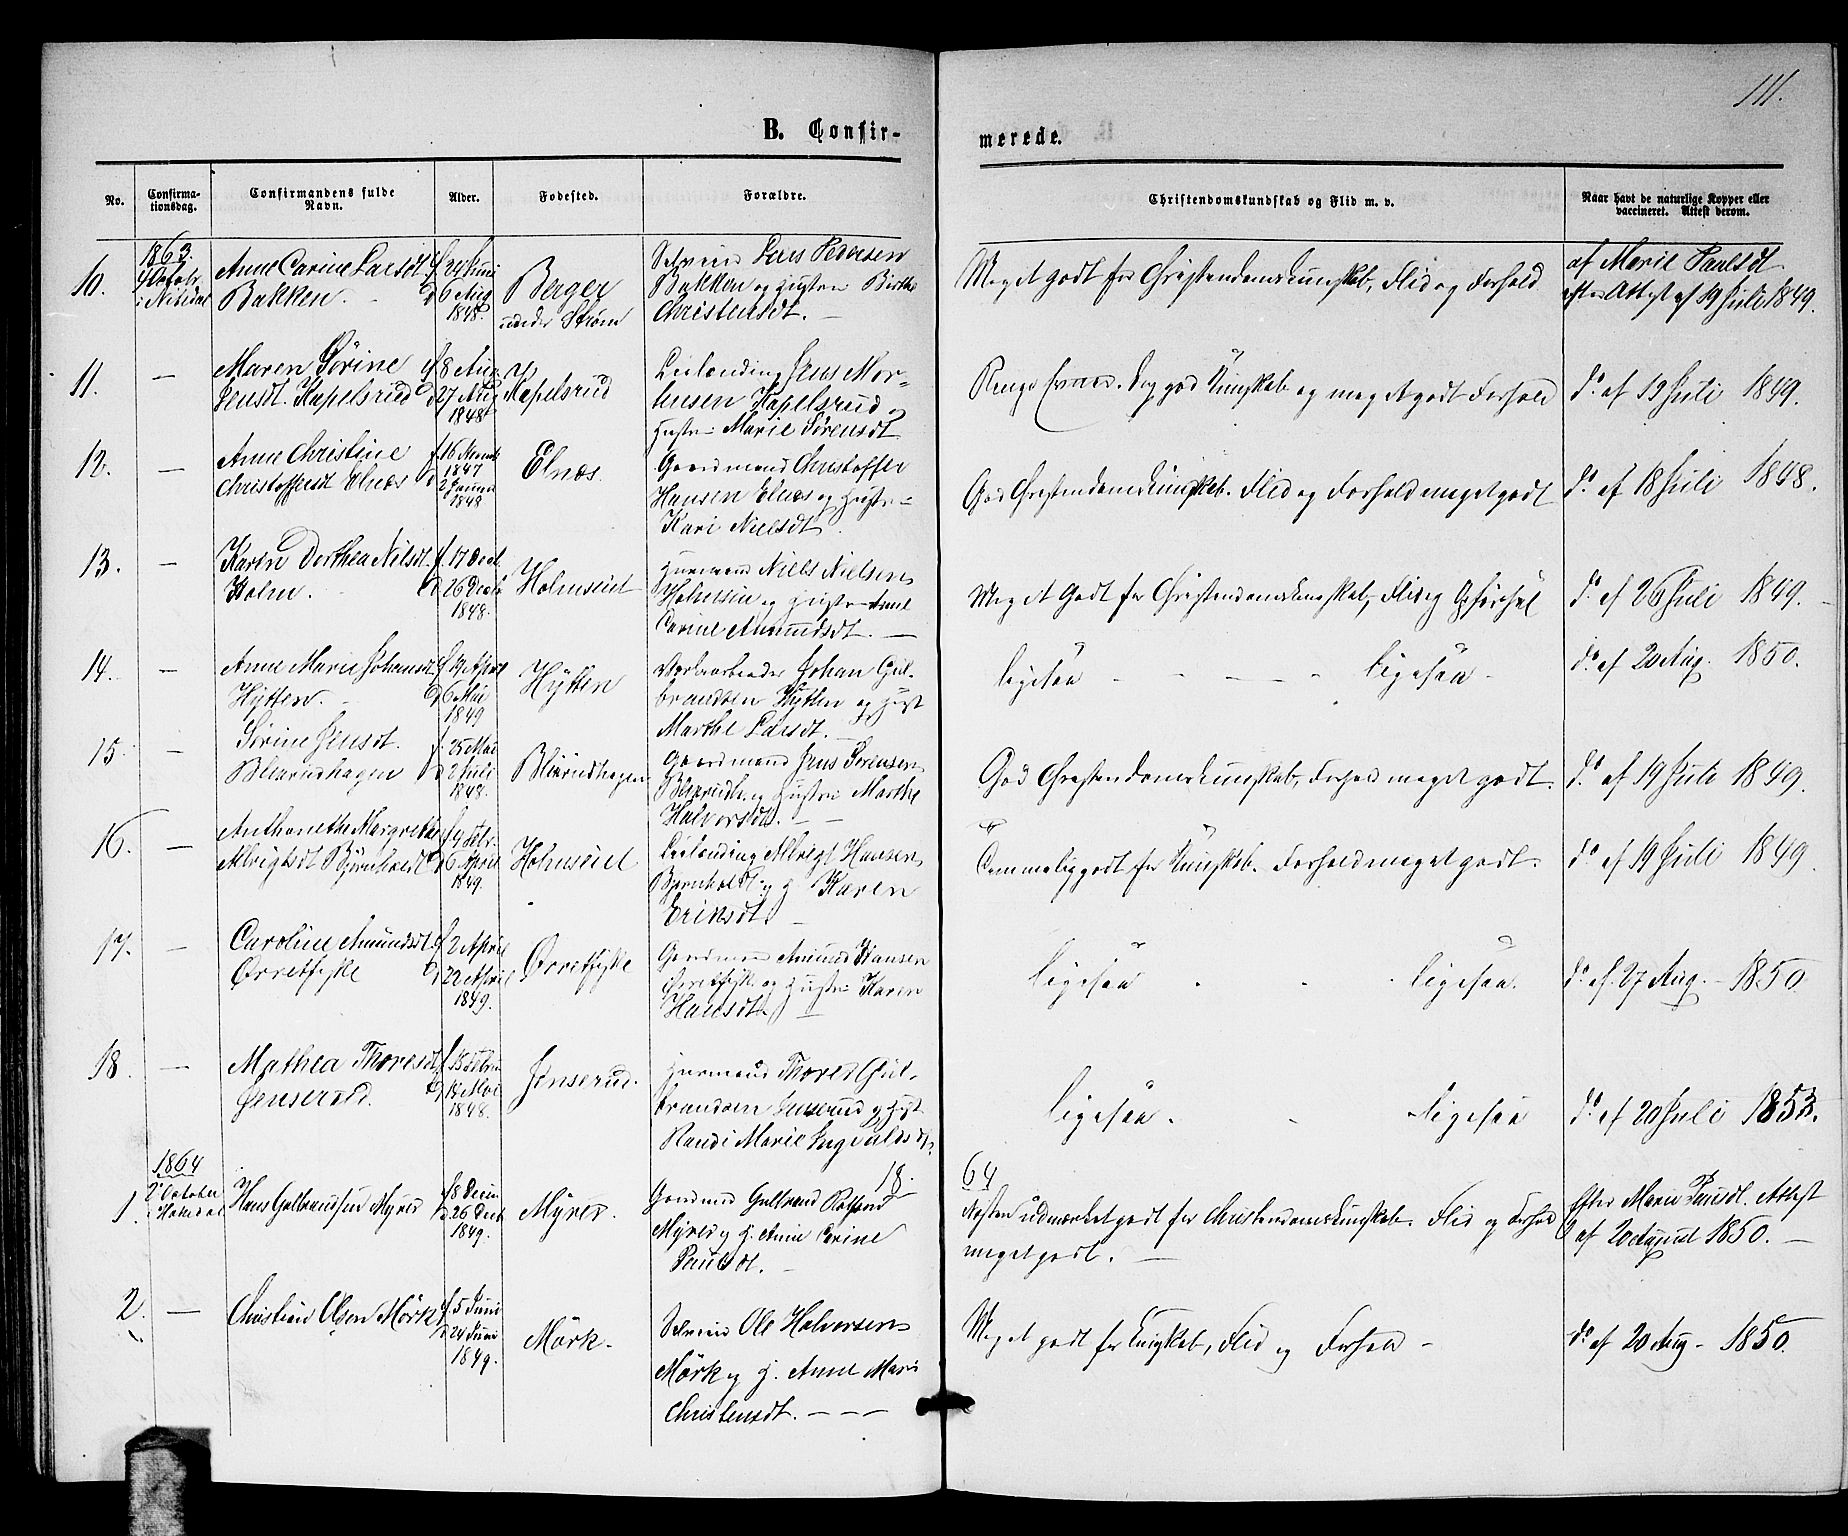 111.
B. Confir-
merede.
No.
Confirma-
tionsdag.
Confirmandens fulde
Navn.
Alder.
Fødested.
Forældre.
Christendomskundskab og Flid m. v.
Naar havt de naturlige Kopper eller
vaccineret. Attest derom.
1863.
10.
4 Octobr.
i Nitedal
Anne Carine Larsdt
Bakken.
f. 24 Juni
d. 6 Aug
1848.
Berger
under Strøm
Lars Pedersen
Bakken og Hustru Birthe
Christensdt.
Meget godt for Christendomskunskab, Flid og Forhold
af Marie Paulsdt
efter Attest af 19 Juli 1849.
11.
—
Maren Sørine
Jensdt. Kapelsrud
f. 8 Aug.
d. 27 Aug
1848
Kapelsrud
Leilænding Jens Mor-
tensen Kapelsrud og
Hustru Marie Sørensdt
god Kunskab og meget godt Forhold
do af 19 Juli 1849.
12.
—
Anne Christine
Christoffersdt Elnæs
f. 16 Novmb
1847
d. 2 Januar
1848
Elnæs.
Gaardmand Christoffer
Hansen Elnæs og Hustru
Kari Nielsdt.
God Christendomskunskab. Flid og Forhold meget godt
do af 18 Juli 1848.
13.
—
Karen Dorthea Nilsdt.
Holm.
f. 17 Decb.
d. 26 Decb
1848.
Holmseiet
Huusmand Niels Nielsen
og Hustru Anne
Carine Amundsdt. —
Meget Godt for Christendomskunskab, Flid og Forhol
do af 26 Juli 1849.
14.
—
Anne Marie Johansdt
Hytten.
f. 19 April
d. 6 Mai
1849
Hytten
Johan Gul-
brandsen Hytten og Hust
Marthe Larsdt.
ligesaa — — — ligesaa
do af 20 Aug. 1850.
15.
—
Sørine Jensdt.
Bleierudhagen
f. 25 Mai
d. 2 Juli
1848.
Bleirudhagen
Gaardmand Jens Sørensen
og Hustru Marthe
Halvorsdt. — —
God Christendomskunskab, Forhold meget godt.
do af 19 Juli 1849.
16.
—
Anthonette Margrethe
Albrigtsdt Bjørnholdt
f. 4 Febr.
d. 6 April
1849.
Holmseiet
Leilænding Albrigt Hansen
Bjørnholdt og H. Karen
Eriksdt.
Temmelig godt for Kunskab. Forhold meget godt.
do af 19 Juli 1849.
17.
—
Caroline Amundsdt
Ørretfiske
f. 2 April
d. 22 April
1849.
Ørretfiske
Gaardmand Amund Hansen
Ørretfiske og Hustru Karen
Hansdt. —
ligesaa ligesaa.
do af 27 Aug. — 1850.
18.
—
Mathea Thoresdt
Jenserud.
f. 13 Febru
d. 13 Mai
1848.
Jenserud.
Huusmand Thores Gul-
brandsen Jenserud og Hust
Randi Marie Ingvaldsdt.
ligesaa. ligesaa
do af 20 Juli 1853.
1864
18.
64
1.
2 October
i Hakedal
Hans Gulbrandsen Myrer
f. 8 Decm
d. 26 Decb
1849.
Myrer.
Gaardmd Gulbrand
Myrer og H. Anne Carine
Paulsdt. —
Næsten udmærket godt for Christendomskunskab. Flid og Forhold
meget godt. —
Efter Marie Paulsdt. Attest
af 20 August 1850. —
2.
—
Christian Olsen Mörk
f. 5 Juni
d. 24 Juni
1849.
Mörk.
Ole Halvorsen
Mörk og H. Anne Marie
Christensdt. — — —
Meget godt for Kunskab, Flid og Forhold —
do af 20 Aug — 1850.